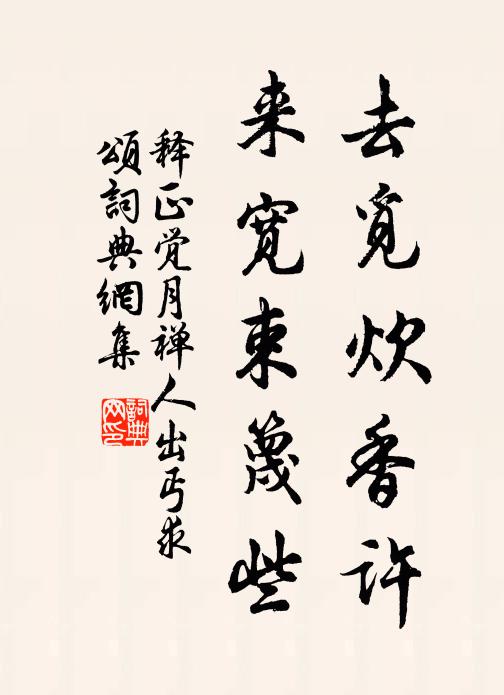 去觅炊香许
来宽束蔑些
释正觉月禅人出丐求
颂词典網集
詞典
网印